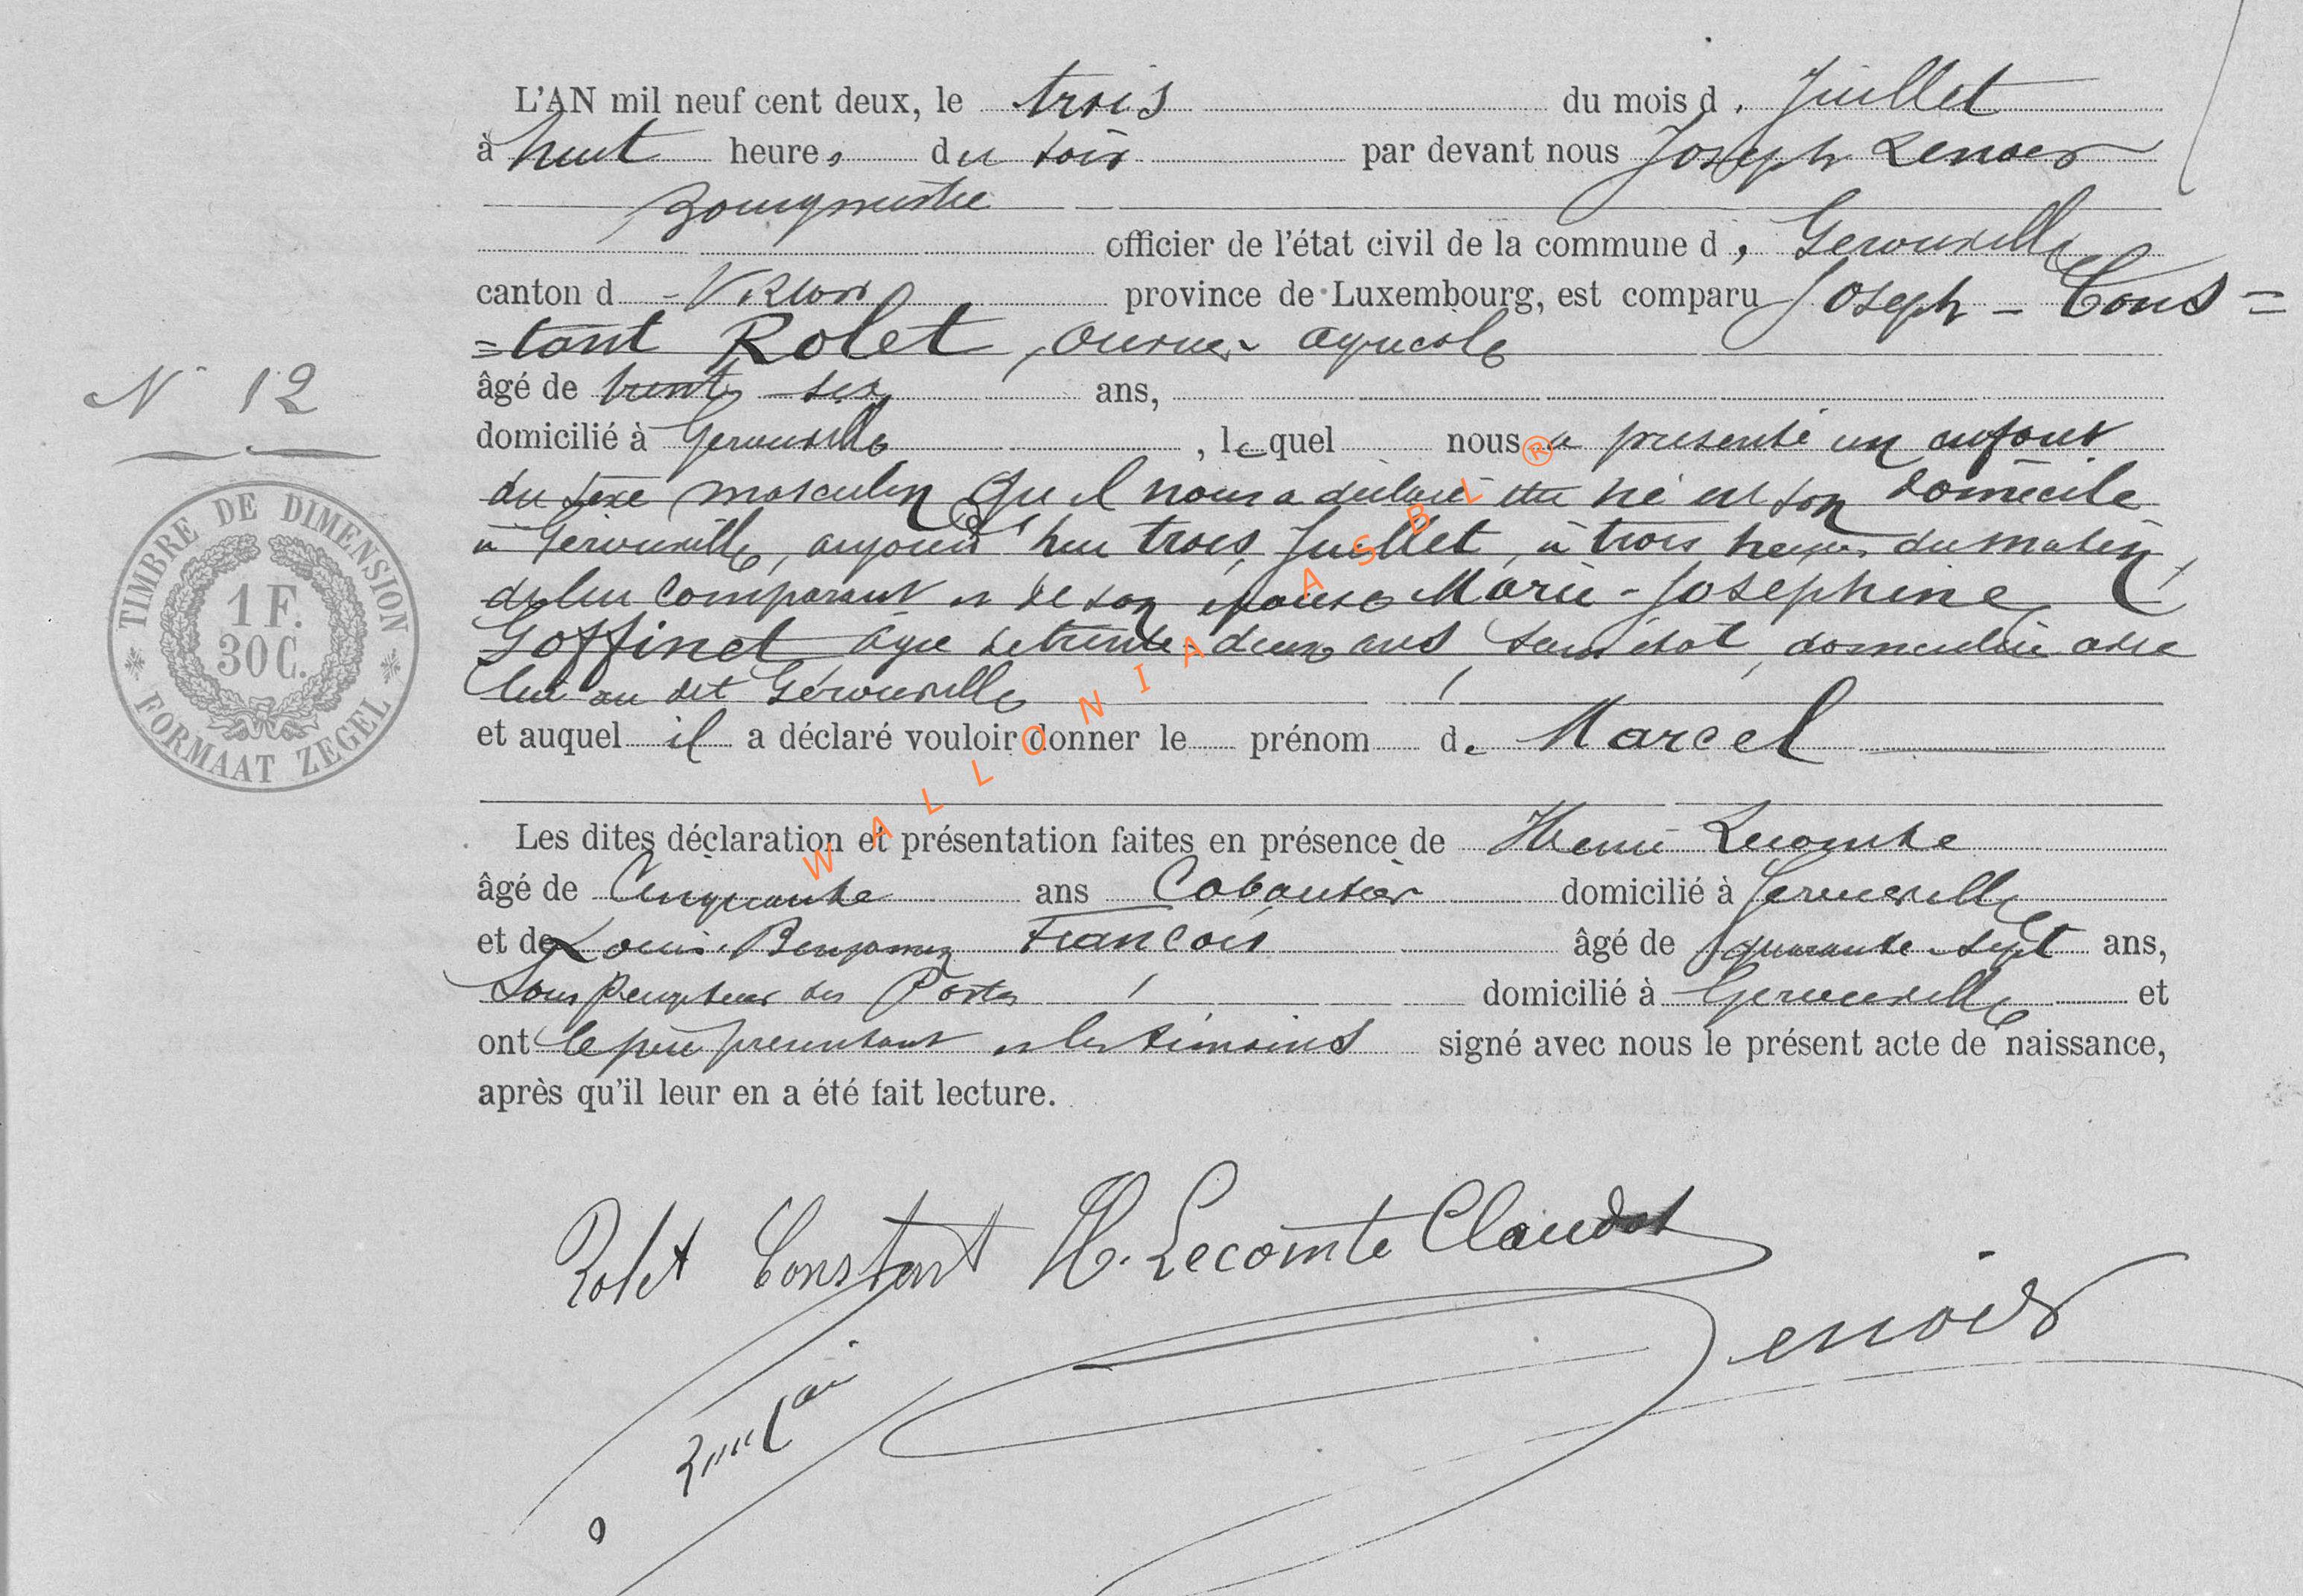 L'AN mil neuf cent deux, le trois du mois de Juillet
à huit heures du soir par devant nous Joseph Lenoir
Bourgmestre
officier de l'état civil de la commune de Gerouville
canton de Virton province de Luxembourg, est comparu Joseph - Cons=
=tant Rolet, ouvrier agricole
N° 12
âgé de trente-six ans,
domicilié à Gerouville, lequel nous a présenté un enfant
du sexe masculin qu'il nous a déclaré être né en son domicile
à Gérouville, aujourd'hui trois Juillet, à trois heures du matin,
de lui comparant et de son épouse Marie-Josephine
Goffinet âgée de trente-deux ans sans état, domiciliée avec
lui au dit Gérouville
et auquel il a déclaré vouloir donner le prénom de Marcel
Les dites déclaration et présentation faites en présence de Henri Lecomte
âgé de Cinquante ans Cabaretier domicilié à Gerouville
et de Louis Benjamin François âgé de quarante-sept ans,
Sous Percepteur des Postes domicilié à Gerouville et
ont le père présentant et les témoins signé avec nous le présent acte de naissance,
après qu'il leur en a été fait lecture.
TIMBRE DE DIMENSION
1 F.
30 C.
FORMAAT ZEGEL
WALLONIA ASBL ®
Rolet Constant H. Lecomte Claudot
Lenoir